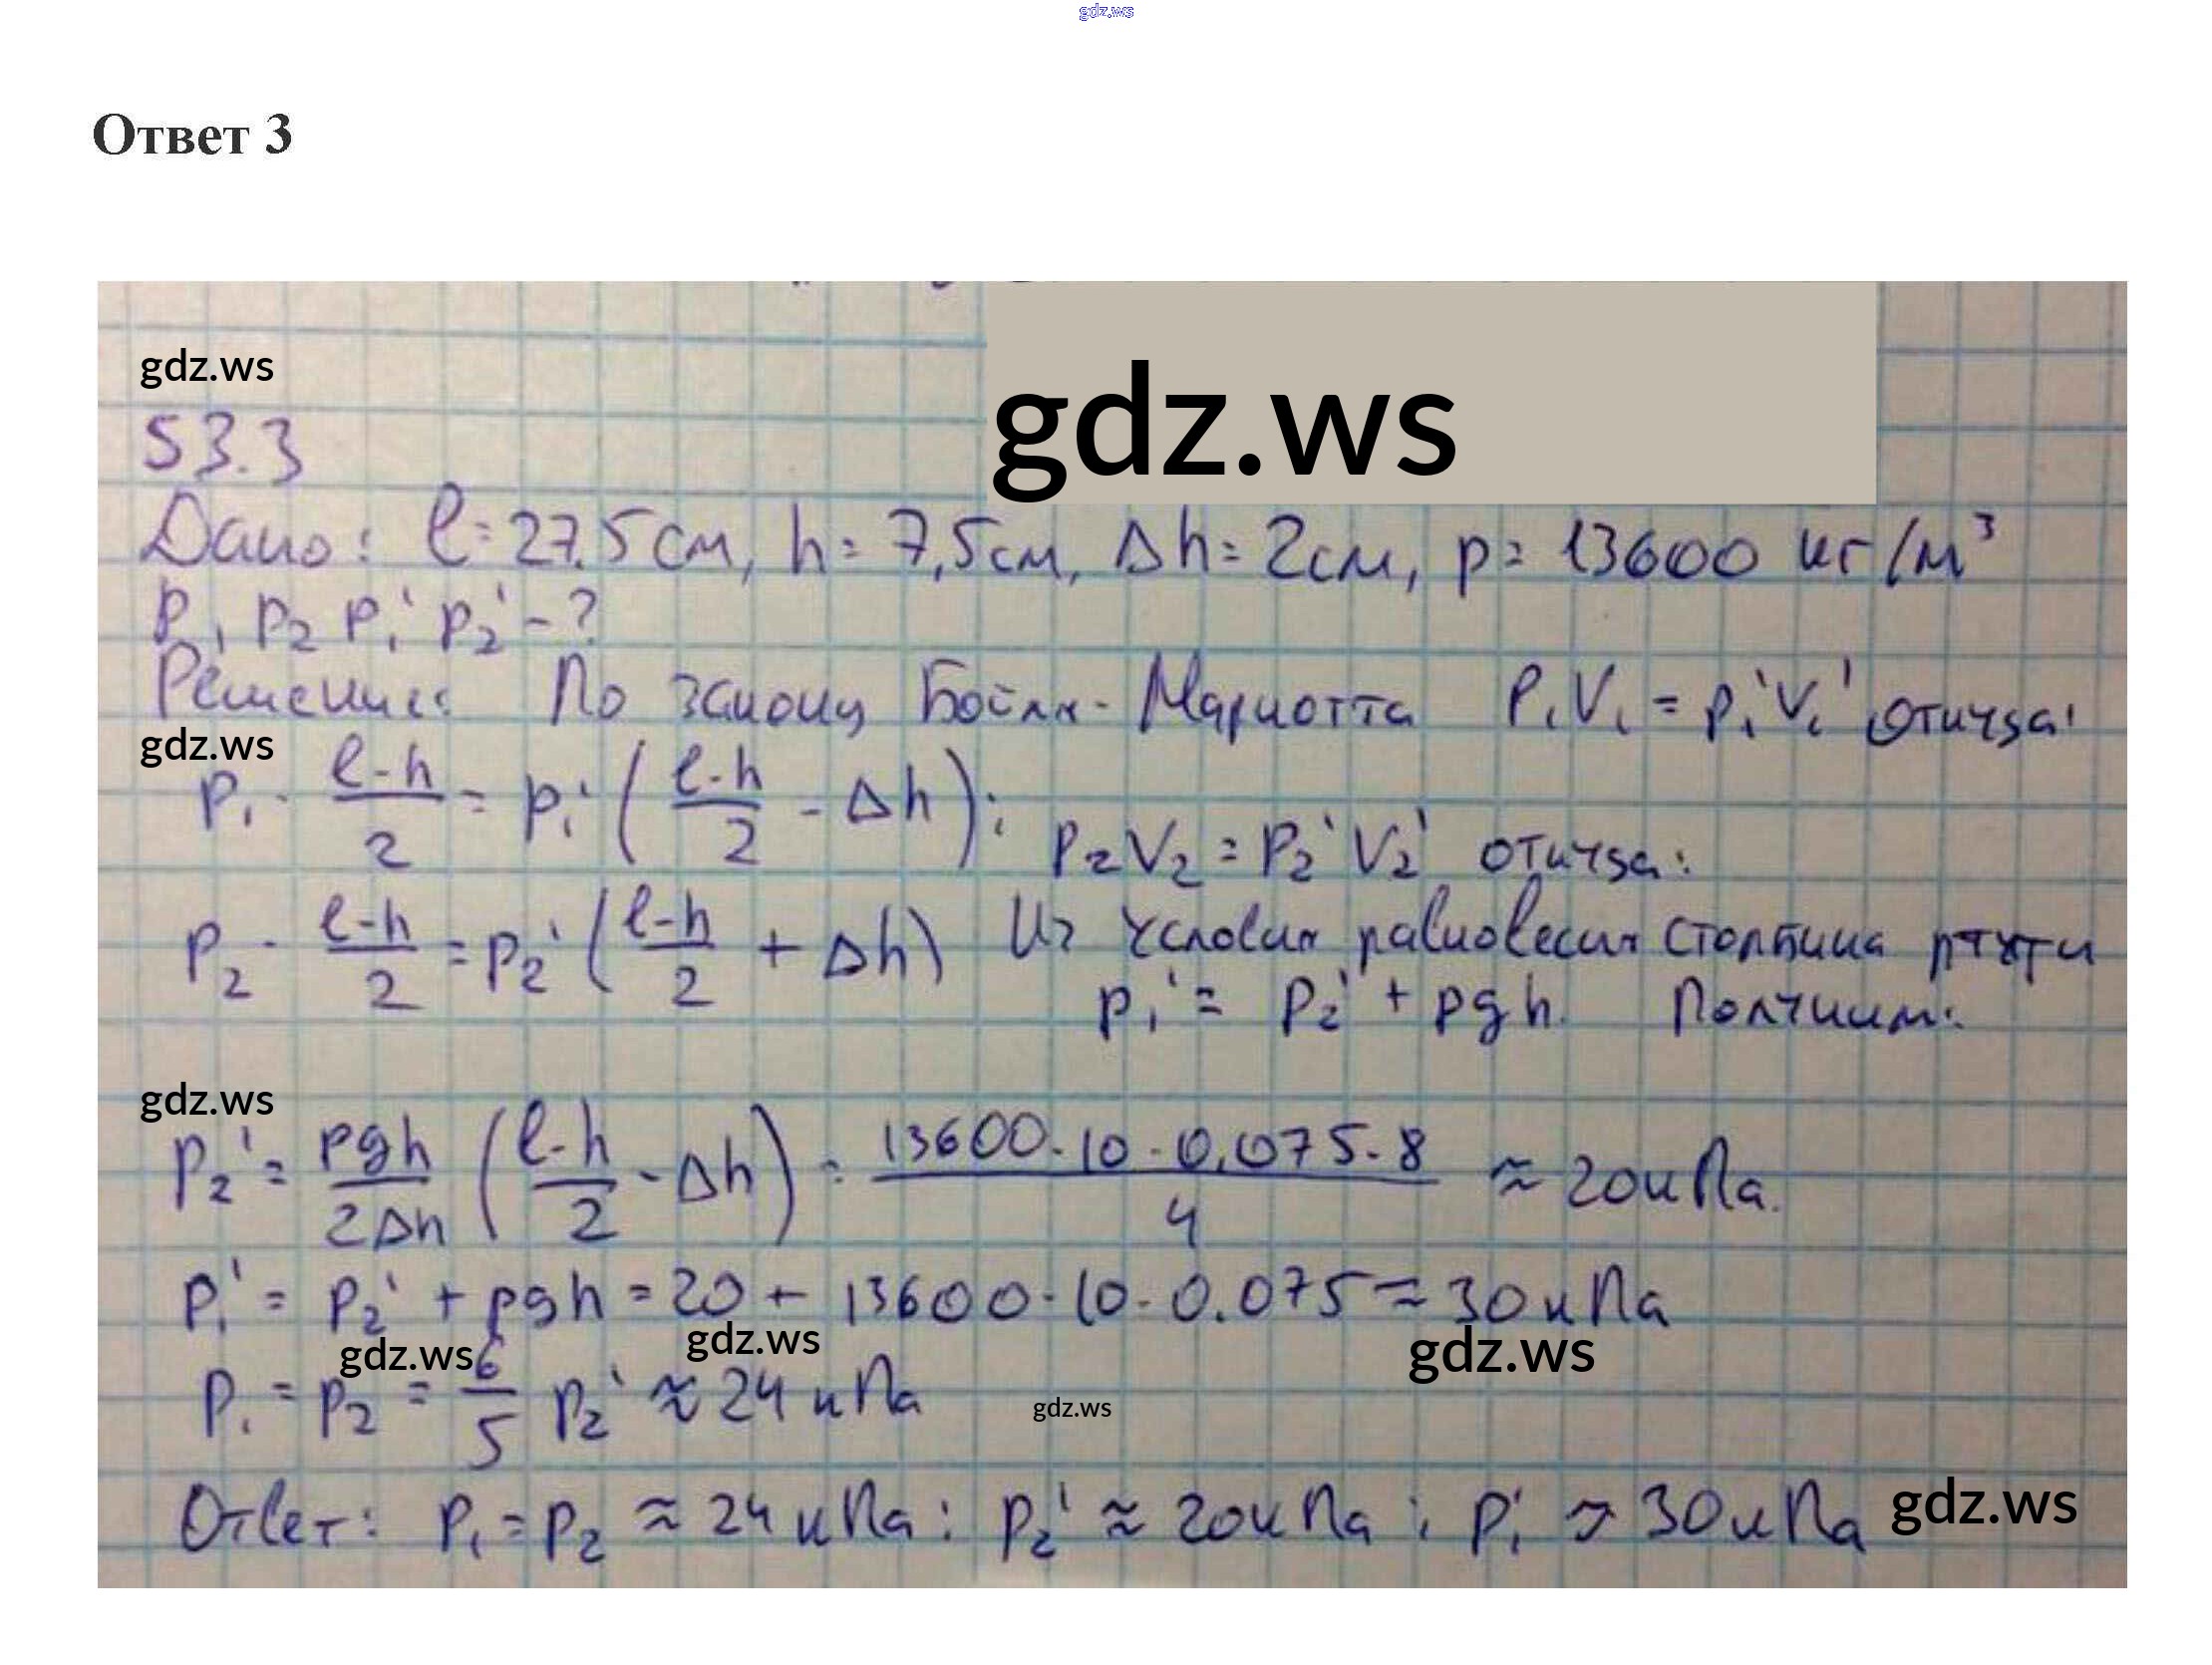 gdz.ws
Ответ 3
gdz.ws
gdz.ws
53.3
Дано: l = 27.5 см, h = 7,5 см, Δh = 2 см, ρ = 13600 кг/м³
P₁ p₂ p₁' p₂' - ?
Решение: По закону Бойля-Мариотта P₁V₁ = p₁'V₁' откуда:
gdz.ws
p₁ · (l-h)/2 = p₁' ((l-h)/2 - Δh);
P₂V₂ = P₂'V₂' откуда:
p₂ · (l-h)/2 = p₂' ((l-h)/2 + Δh) Из условия равновесия столбика ртути
p₁' = p₂' + ρgh. Получим:
gdz.ws
p₂' = ρgh/2Δh ((l-h)/2 - Δh) = 13600·10·0,075·8/4 ≈ 20 кПа.
p₁' = p₂' + ρgh = 20 + 13600·10·0.075 ≈ 30 кПа
gdz.ws gdz.ws gdz.ws
p₁ = p₂ = 6/5 p₂' ≈ 24 кПа
gdz.ws
Ответ: p₁ = p₂ ≈ 24 кПа; p₂' ≈ 20 кПа; p₁' ≈ 30 кПа
gdz.ws